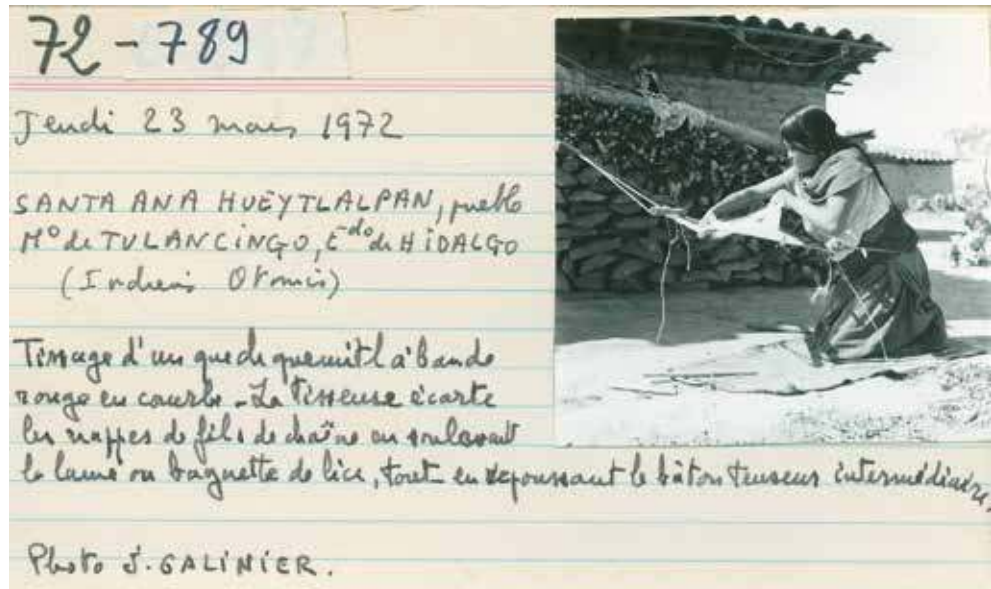 72-789
Jeudi 23 mars 1972
SANTA ANA HUEYTLALPAN, pueblo
Mº de TULANCINGO, Eᵈᵒ de HIDALGO
(Indiens Otomis)
Tissage d'un quechquemitl à bande
rouge en courbe - La Tisseuse écarte
les nappes de fils de chaîne en soulevant
la lame ou baguette de lice, tout en repoussant le bâton tenseur intermédiaire.
Photo J. GALINIER.